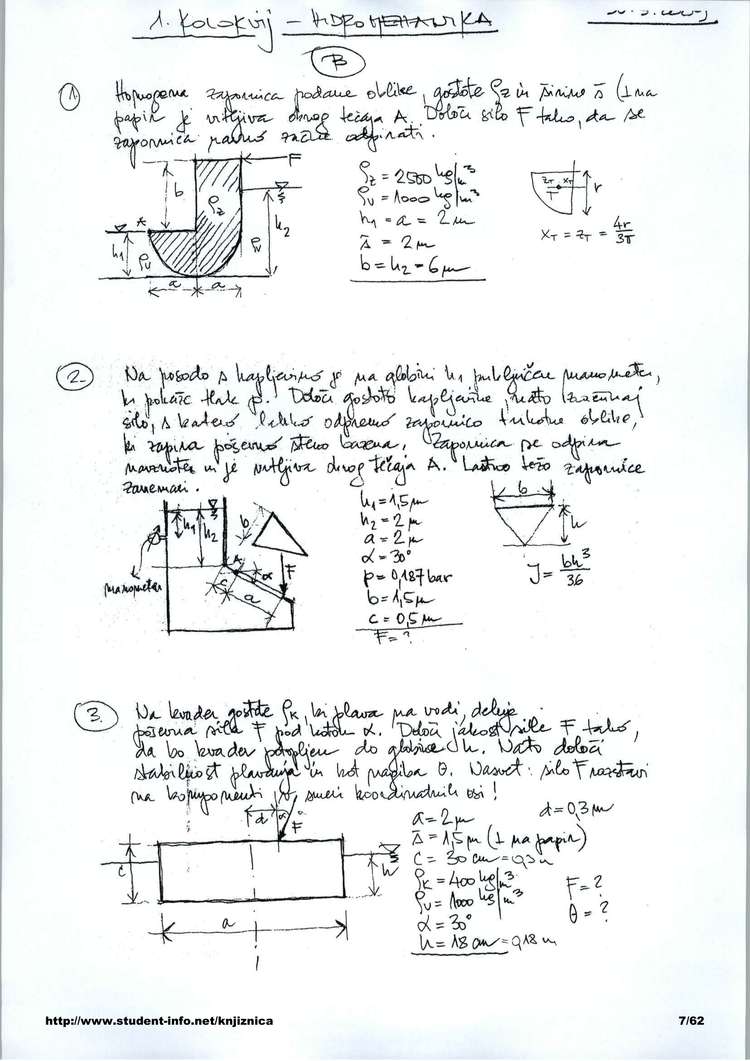 1. KOLOKVIJ - HIDROMEHANIKA
B
1. Homogena zapornica podane oblike, gostote ρz in širine š (⊥ na
papir je vrtljiva okrog tečaja A. Določi silo F tako, da se
zapornica ravno začne odpirati.
F
b
ρz
A
h1
ρv
h2
ρv
a
a
ρz = 2500 kg/m³
ρv = 1000 kg/m³
h1 = a = 2m
š = 2m
b = h2 = 6m
zT
xT
T
r
xT = zT = 4r/3π
2. Na posodo s kapljevino je na globini h1 priključen manometer,
ki pokaže tlak p. Določi gostoto kapljevine, nato izračunaj
silo, s katero lahko odpremo zapornico trikotne oblike,
ki zapira poševno steno bazena. Zapornica se odpira
navznoter in je vrtljiva okrog tečaja A. Lastno težo zapornice
zanemari.
h1
h2
b
A
α
F
c
a
manometer
h1 = 1,5m
h2 = 2m
a = 2m
α = 30°
p = 0,187 bar
b = 1,5m
c = 0,5m
F = ?
b
h
J = bh³/36
3. Na kvader gostote ρk, ki plava na vodi, deluje
poševna sila F pod kotom α. Določi jakost sile F tako,
da bo kvader potopljen do globine h. Nato določi
stabilnost plavanja in kot nagiba θ. Nasvet: silo F razstavi
na komponenti v smeri koordinatnih osi!
d
α
F
c
h
a
a = 2m
d = 0,3m
š = 1,5m (⊥ na papir)
c = 30 cm = 0,3m
ρk = 400 kg/m³
ρv = 1000 kg/m³
α = 30°
h = 18 cm = 0,18 m
F = ?
θ = ?
http://www.student-info.net/knjiznica
7/62